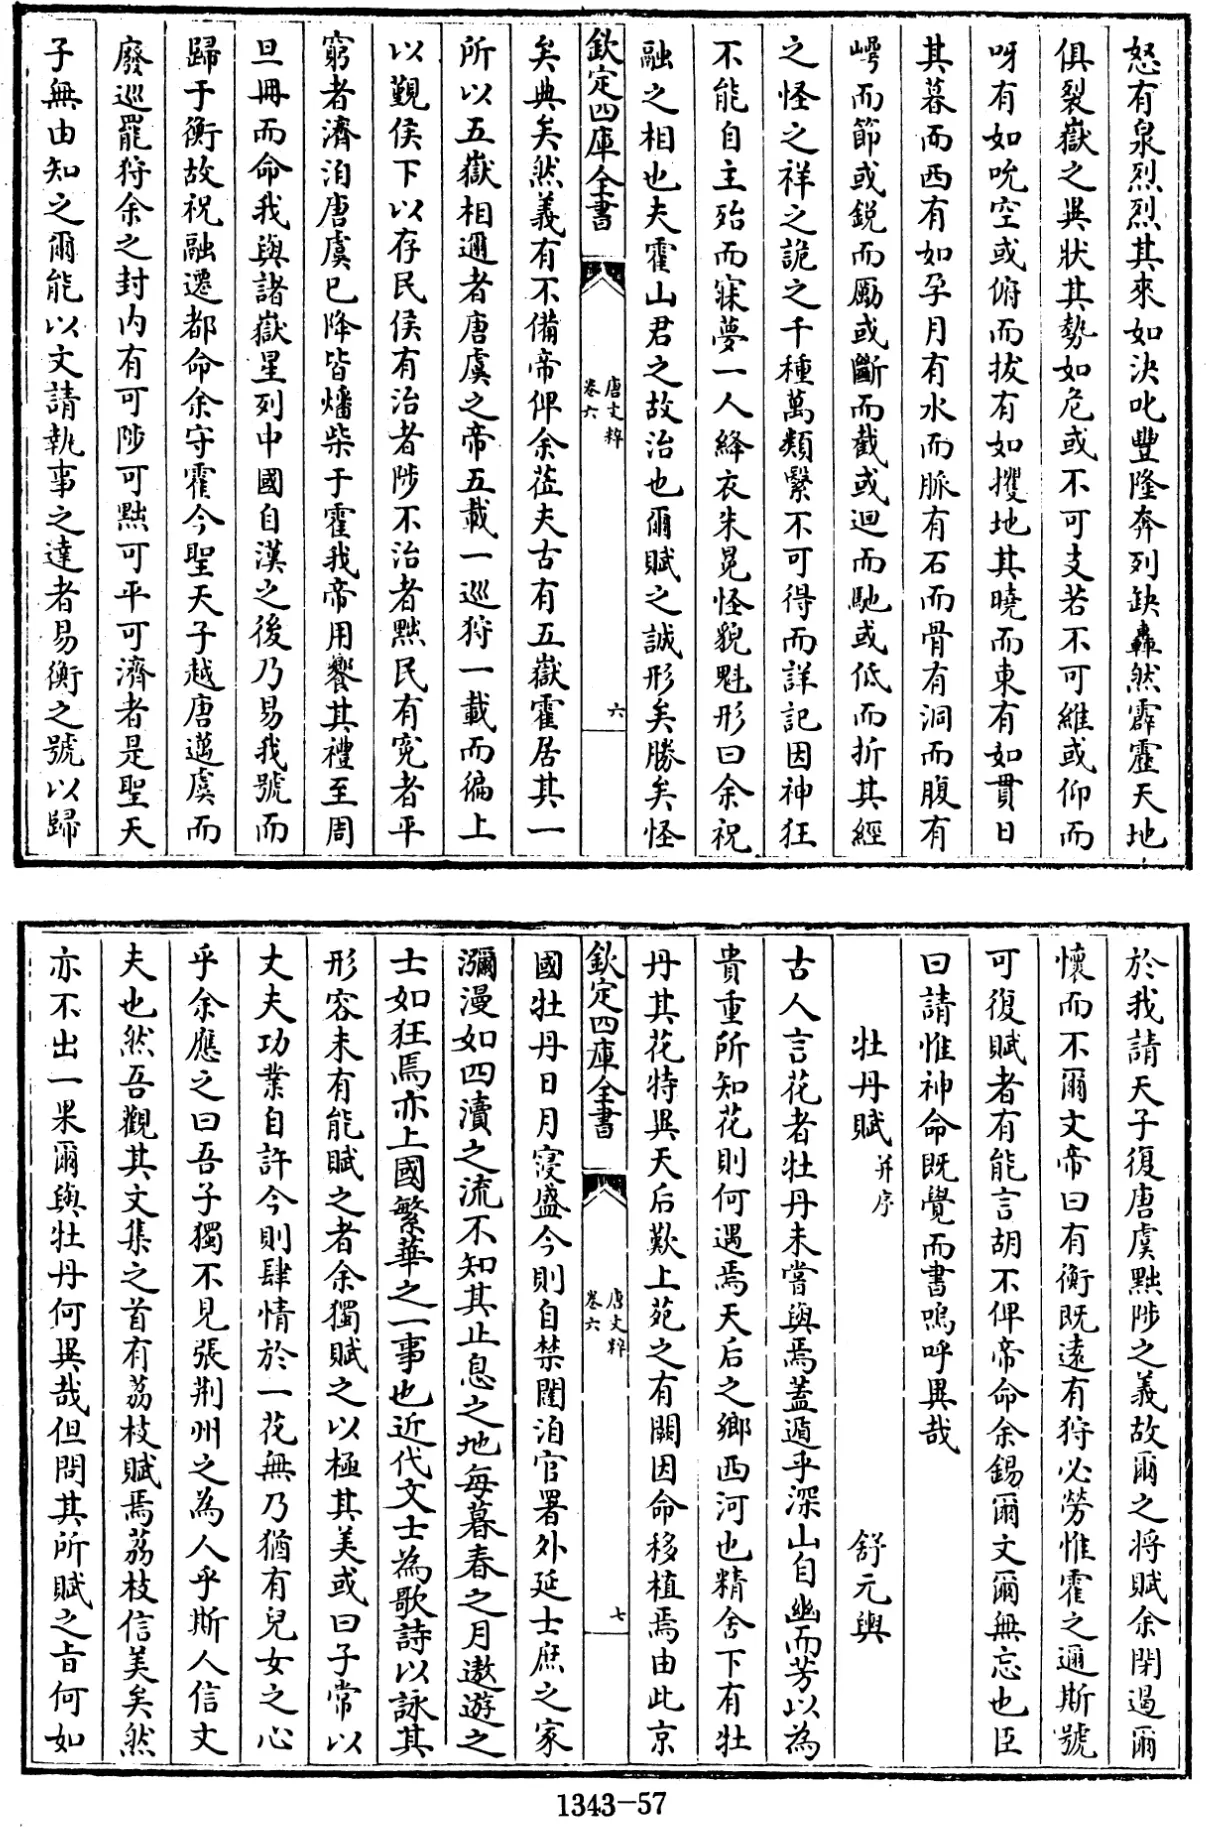 怒有泉烈烈其來如決叱豐隆奔列缺轟然霹靂天地
俱裂嶽之異狀其勢如危或不可支若不可維或仰而
呀有如吮空或俯而拔有如攫地其曉而東有如貫日
其暮而西有如孕月有水而脈有石而骨有洞而腹有
崿而節或銳而厲或斷而截或迴而馳或低而折其經
之怪之祥之詭之千種萬類繄不可得而詳記因神狂
不能自主殆而寐夢一人絳衣朱冕怪貌魁形曰余祝
融之相也夫霍山君之故治也爾賦之誠形矣勝矣怪
欽定四庫全書
唐文粹
卷六
六
矣典矣然義有不備帝俾余蒞夫古有五嶽霍居其一
所以五嶽相邇者唐虞之帝五載一巡狩一載而徧上
以覲侯下以存民侯有治者陟不治者黜民有寃者平
窮者濟洎唐虞已降皆燔柴于霍我帝用饗其禮至周
旦冊而命我與諸嶽星列中國自漢之後乃易我號而
歸于衡故祝融遷都命余守霍今聖天子越唐邁虞而
廢巡罷狩余之封内有可陟可黜可平可濟者是聖天
子無由知之爾能以文請執事之達者易衡之號以歸
於我請天子復唐虞黜陟之義故爾之將賦余閉遏爾
懷而不爾文帝曰有衡既遠有狩必勞惟霍之邇斯號
可復賦者有能言胡不俾帝命余錫爾文爾無忘也臣
曰請惟神命既覺而書嗚呼異哉
牡丹賦 并序 舒元輿
古人言花者牡丹未嘗與焉蓋遁乎深山自幽而芳以為
貴重所知花則何遇焉天后之鄉西河也精舍下有牡
丹其花特異天后歎上苑之有闕因命移植焉由此京
欽定四庫全書
唐文粹
卷六
七
國牡丹日月寖盛今則自禁闥洎官署外延士庶之家
瀰漫如四瀆之流不知其止息之地每暮春之月遨遊之
士如狂焉亦上國繁華之一事也近代文士為歌詩以詠其
形容未有能賦之者余獨賦之以極其美或曰子常以
丈夫功業自許今則肆情於一花無乃猶有兒女之心
乎余應之曰吾子獨不見張荆州之為人乎斯人信丈
夫也然吾觀其文集之首有荔枝賦焉荔枝信美矣然
亦不出一果爾與牡丹何異哉但問其所賦之旨何如
1343-57